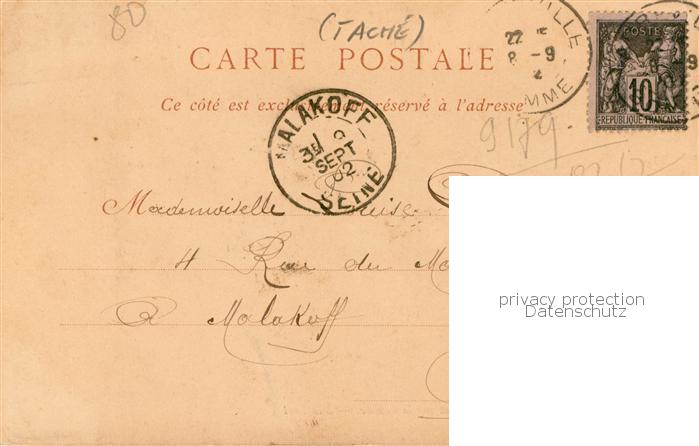 80
(TACHÉ)
CARTE POSTALE
Ce côté est exclusivement réservé à l'adresse
POSTE
10
REPUBLIQUE FRANÇAISE
22
8 - 9
2
MALAKOFF
SEPT
02
SEINE
9179.
Mademoiselle
4 Rue du
à Malakoff
privacy protection
Datenschutz